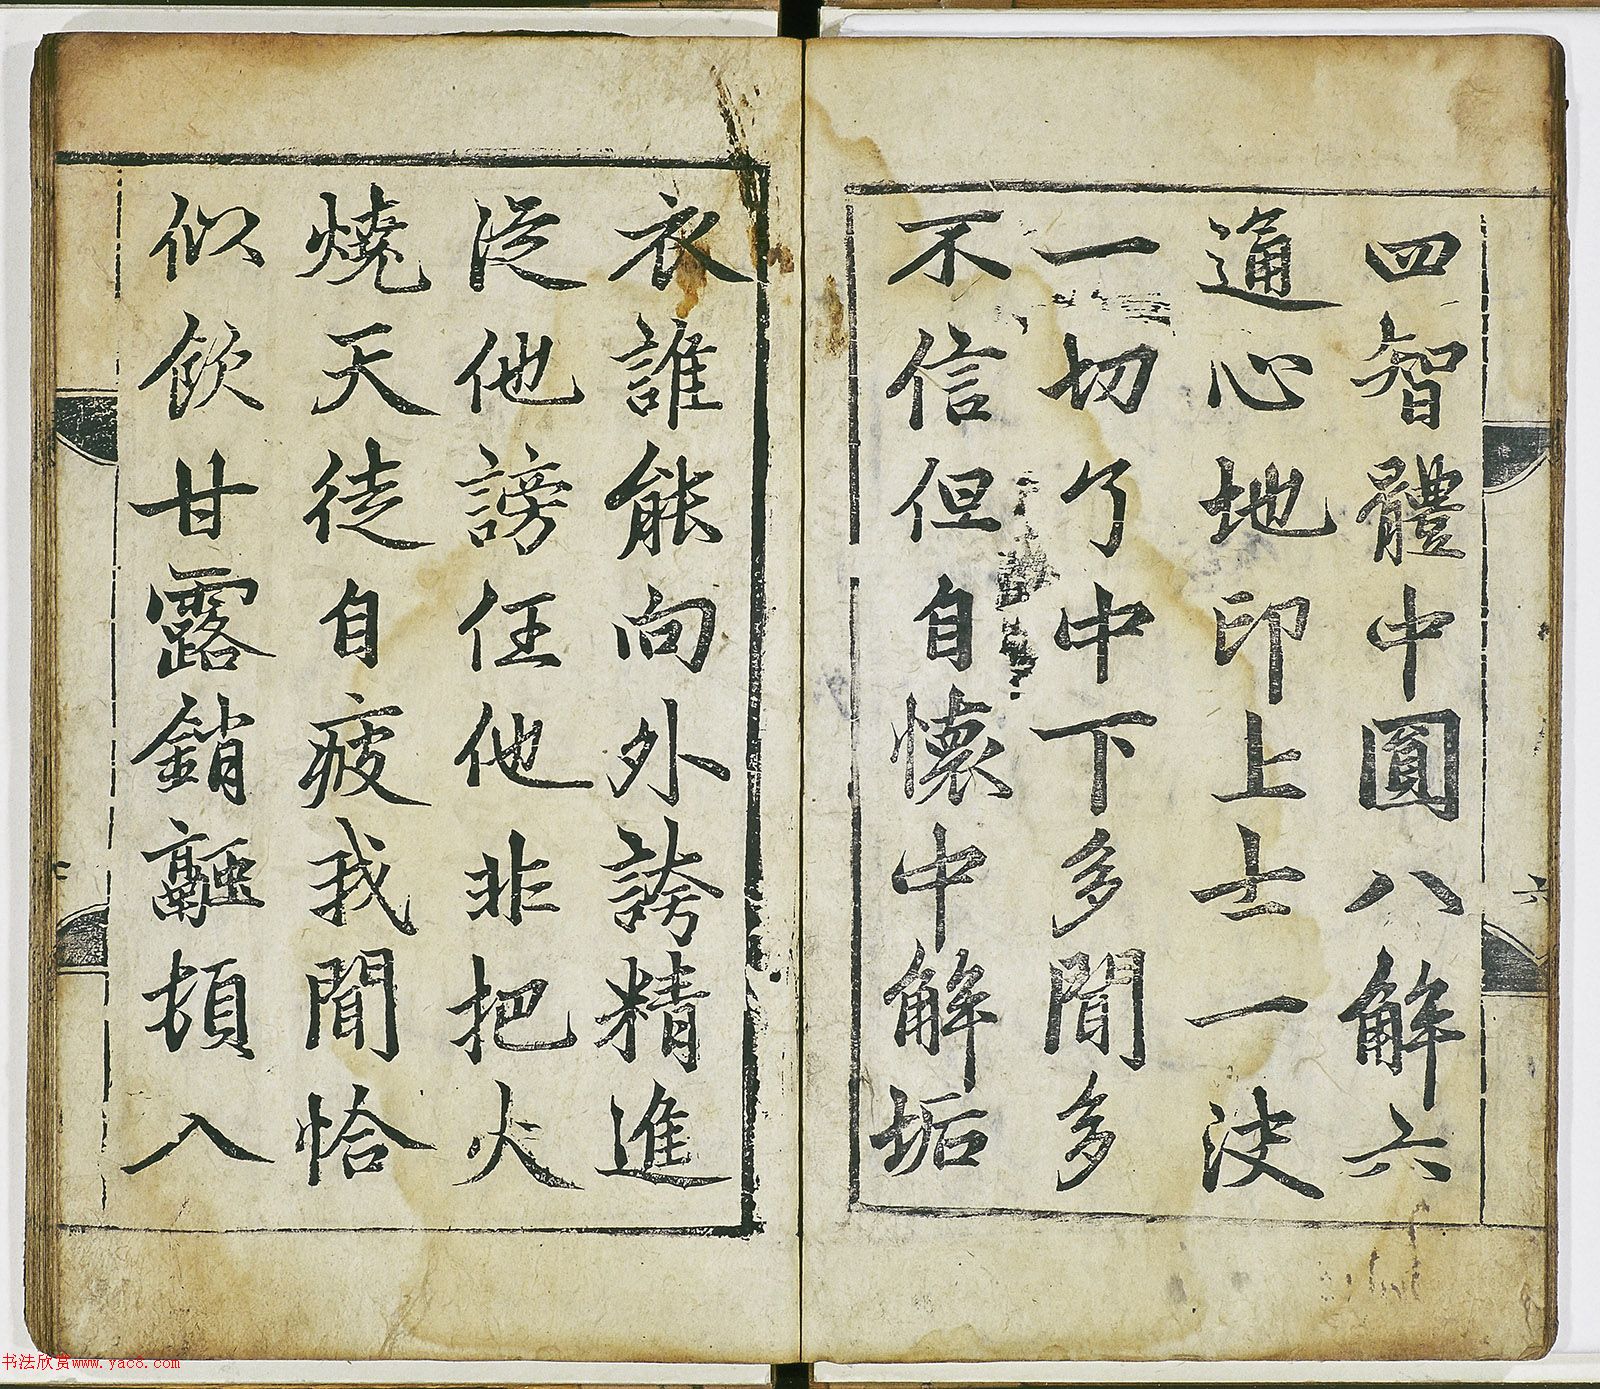 四智體中圓八解六
通心地印上士一決
一切了中下多聞多
不信但自懷中解垢
衣誰能向外誇精進
從他謗任他非把火
燒天徒自疲我聞恰
似飲甘露銷融頓入
六
书法欣赏www.yac8.com